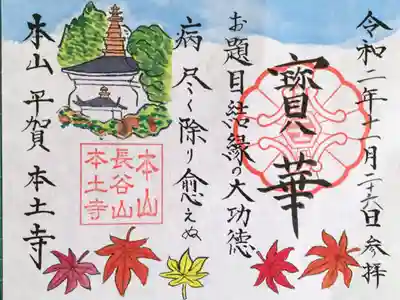 令和二年十一月二十六日参拝
寳華
お題目結縁の大功徳
病尽く除り愈えぬ
本山平賀本土寺
本山
長谷山
本土寺